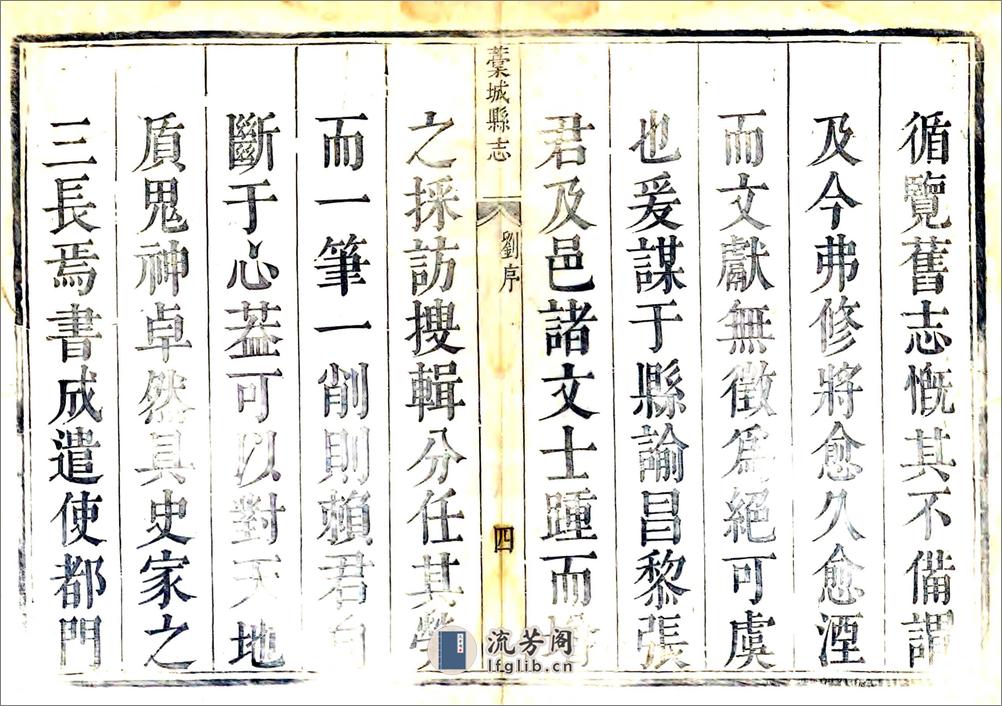 循覽舊志慨其不備謂
及今弗修將愈久愈湮
而文獻無徵爲絕可虞
也爰謀于縣諭昌黎張
君及邑諸文士踵而
藁城縣志
劉序
四
之採訪搜輯分任其勞
而一筆一削則賴君自
斷于心葢可以對天地
貭鬼神卓然具史家之
三長焉書成遣使都門
流芳阁
lfglib.cn